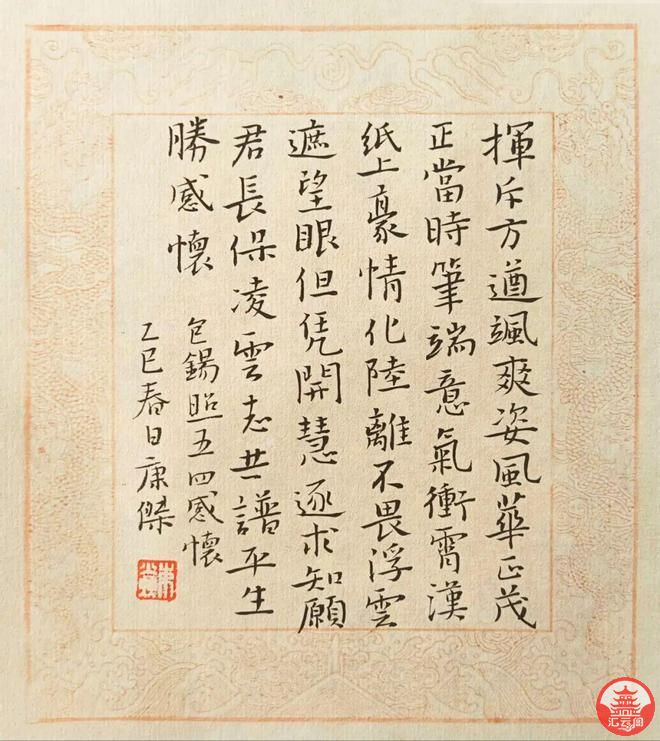 揮斥方遒颯爽姿風華正茂
正當時筆端意氣衝霄漢
紙上豪情化陸離不畏浮雲
遮望眼但凭開慧逐求知願
君長保凌雲志共譜平生
勝感懷
包錫照五四感懷
乙巳春日康傑
汇云阁